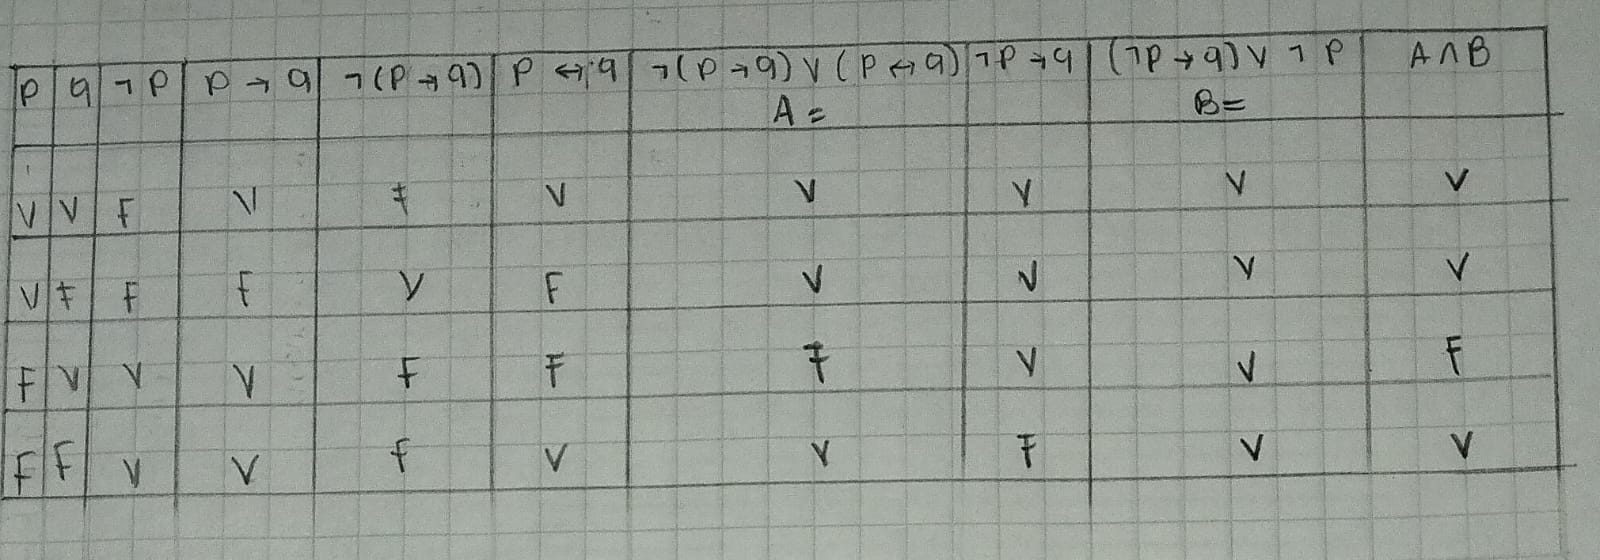 p q ¬p p→q ¬(p→q) p↔q ¬(p→q)∨(p↔q) ¬p→q (¬p→q)∨¬p A∧B
A= B=
V V F V F V V V V V
V F F F V F V V V V
F V V V F F F V V F
F F V V F V V F V V